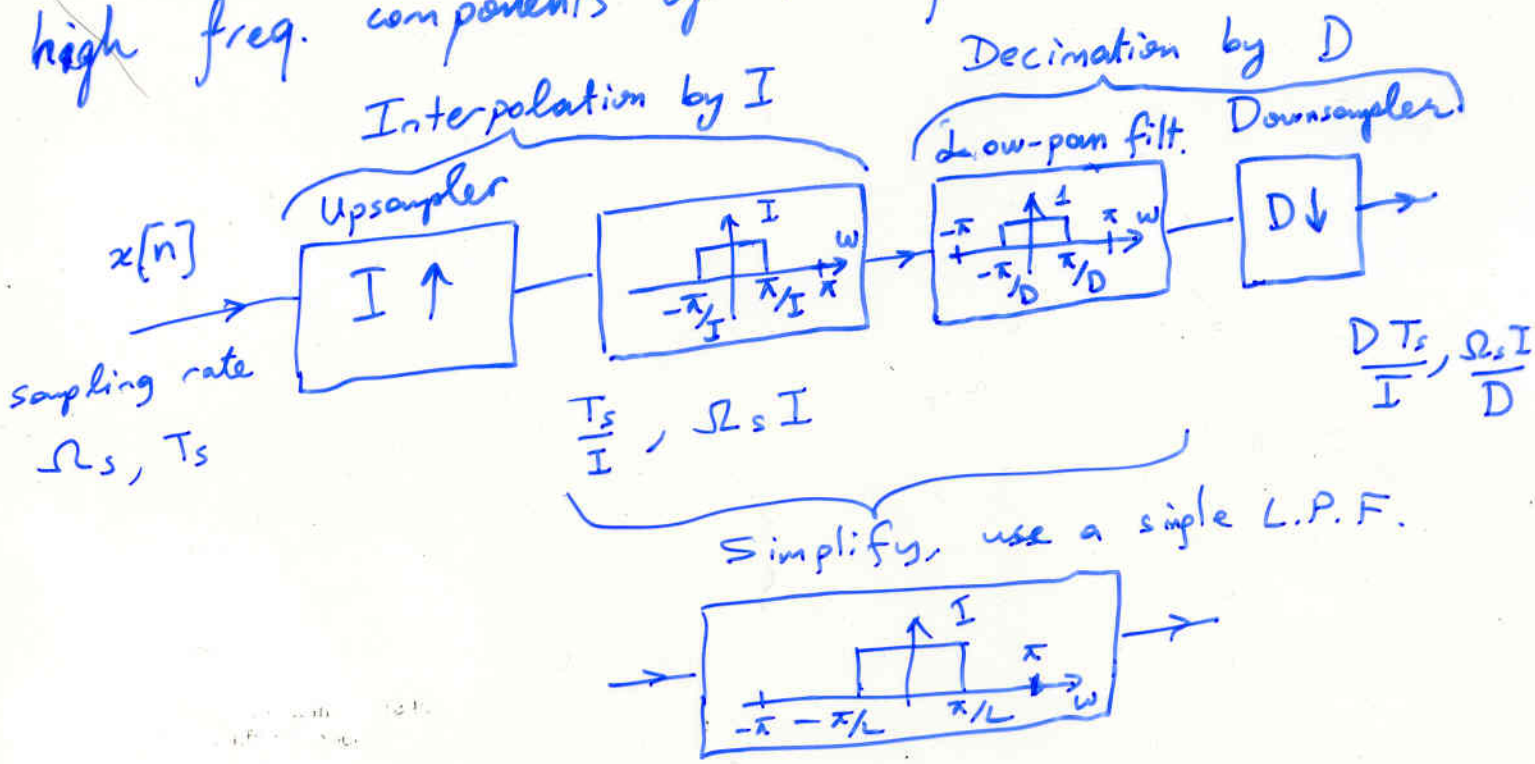 high freq. components
Decimation by D
Interpolation by I
Low-pass filt. Downsampler
Upsampler
x[n]
I ↑
I
ω
-π/I π/I π
1
-π π ω
-π/D π/D
D↓
sampling rate
Ωs, Ts
Ts/I , Ωs I
D Ts/I, Ωs I/D
Simplify, use a single L.P.F.
I
π
-π -π/L π/L ω